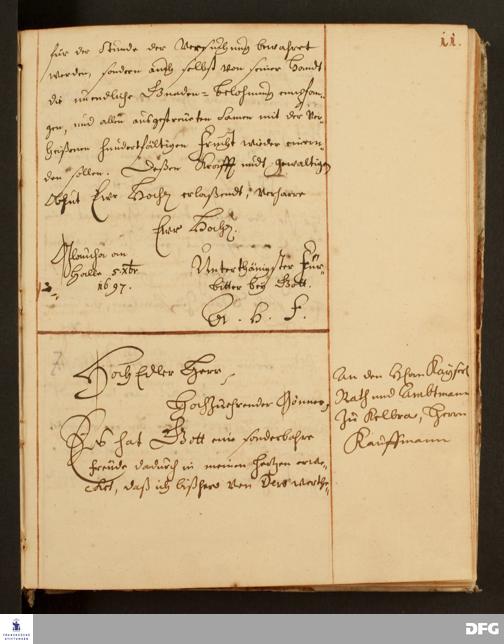 11.
für der Stunde der Versuchung bewahret
werden, sondern auch selbst von seiner Handt
die unendliche Gnaden-Belohnung empfan-
gen, und allen ausgestreueten Samen mit der Ver-
heißenen hundertfältigen Frucht wieder einern-
den sollen. Deßen gewaltigen
Obhut Ewr Hoch. erlaßendt, verharre
Ewr Hoch.
Glaucha an
Halle 5. Xbr.
1697.
Unterthänigster Für-
bitter bey Gott.
A. H. F.
Hoch Edler Herr,
Hochzuehrender Gönner,
Es hat Gott eine sonderbahre
Freude dadurch in meinem Hertzen erwe-
cket, daß ich bißhero von Dero werthe-
An den Kayser
Rath und Ambtmann
zu Kelbra, Herrn
Kauffmann
FRANCKESCHE
STIFTUNGEN
DFG